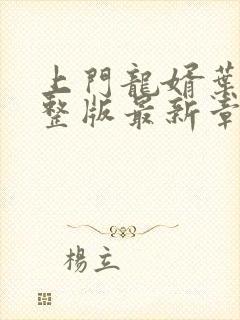 上門龍婿葉
整版最新章
楊立